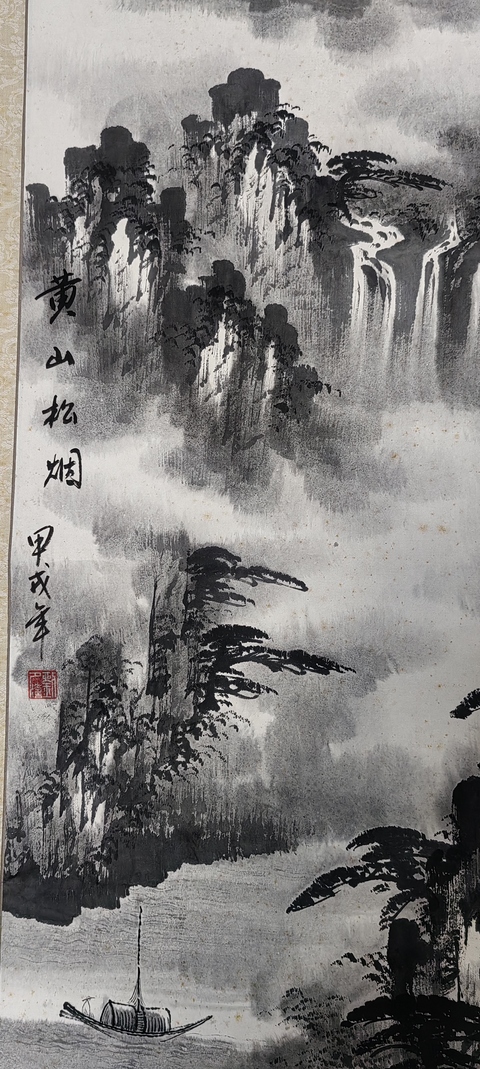 黄山松烟
甲戌年